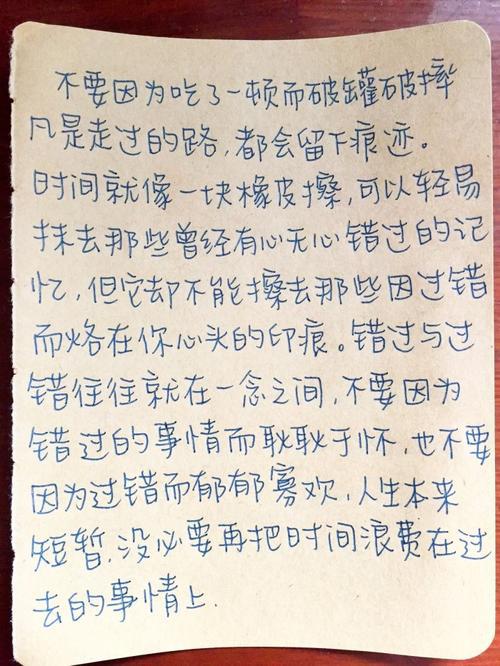 不要因为吃了一顿而破罐破摔
凡是走过的路，都会留下痕迹。
时间就像一块橡皮擦，可以轻易
抹去那些曾经有心无心错过的记
忆，但它却不能擦去那些因过错
而烙在你心头的印痕。错过与过
错往往就在一念之间，不要因为
错过的事情而耿耿于怀，也不要
因为过错而郁郁寡欢，人生本来
短暂，没必要再把时间浪费在过
去的事情上.